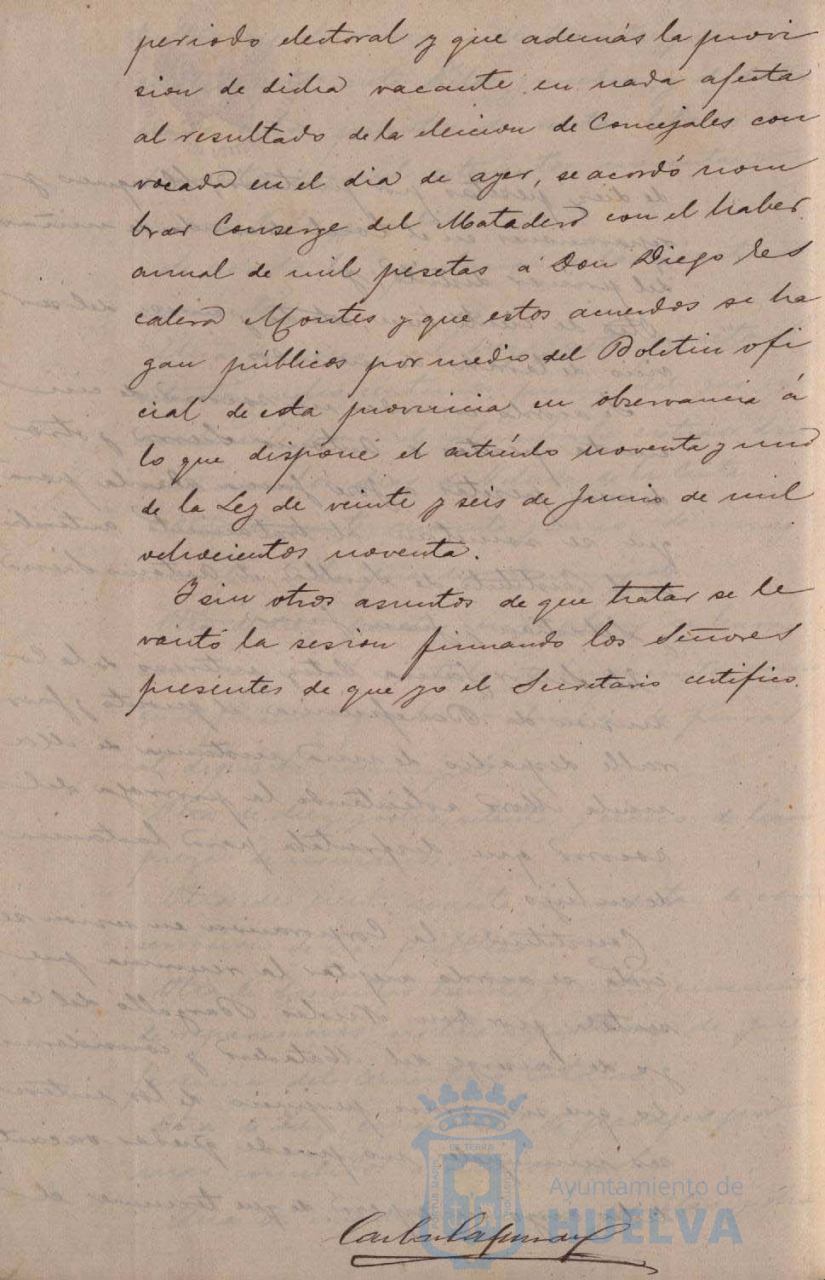 periodo electoral y que además la provi
sion de dicha vacante en nada afecta
al resultado de la eleccion de Concejales con
vocada en el dia de ayer, se acordó nom
brar Conserge del Matadero con el haber
anual de mil pesetas á Don Diego Les
calera Montes y que estos acuerdos se ha
gan públicos por medio del Boletin ofi
cial de esta provincia en observancia á
lo que dispone el artículo noventa y uno
de la Ley de veinte y seis de Junio de mil
ochocientos noventa.
Y sin otros asuntos de que tratar se le
vantó la sesion firmando los Señores
presentes de que yo el Secretario certifico.
Ayuntamiento de
HUELVA